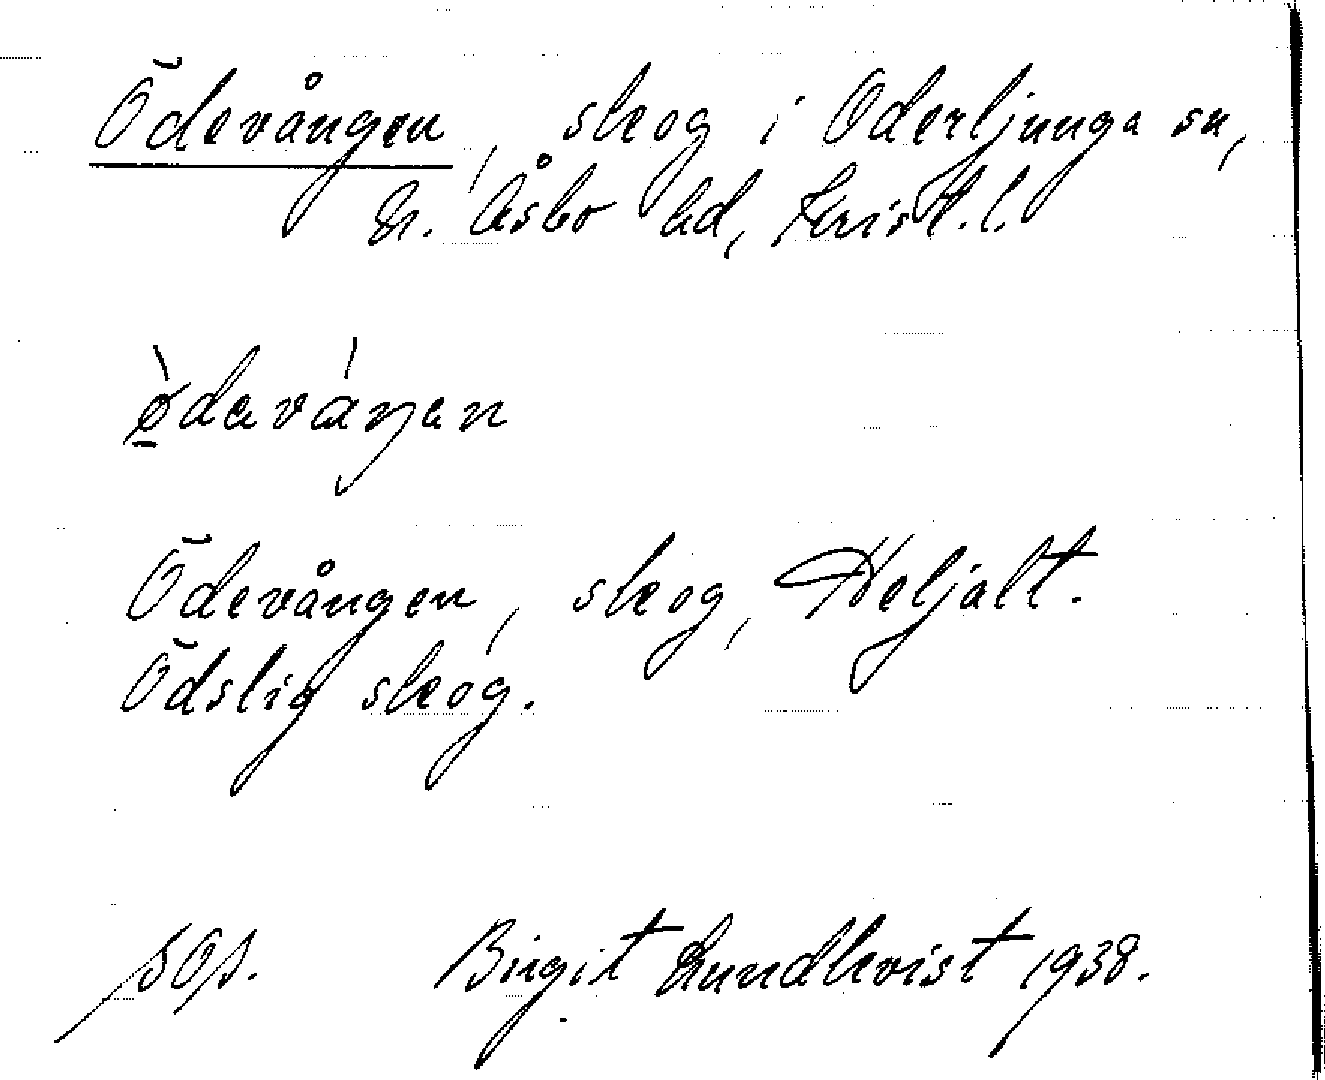 Ödevången, skog i Oderljunga sn,
N. Åsbo hd, Krist. l.
ø̀deváŋen
Ödevången, skog, Heljalt.
Ödslig skog.
Birgit Lundkvist 1938.